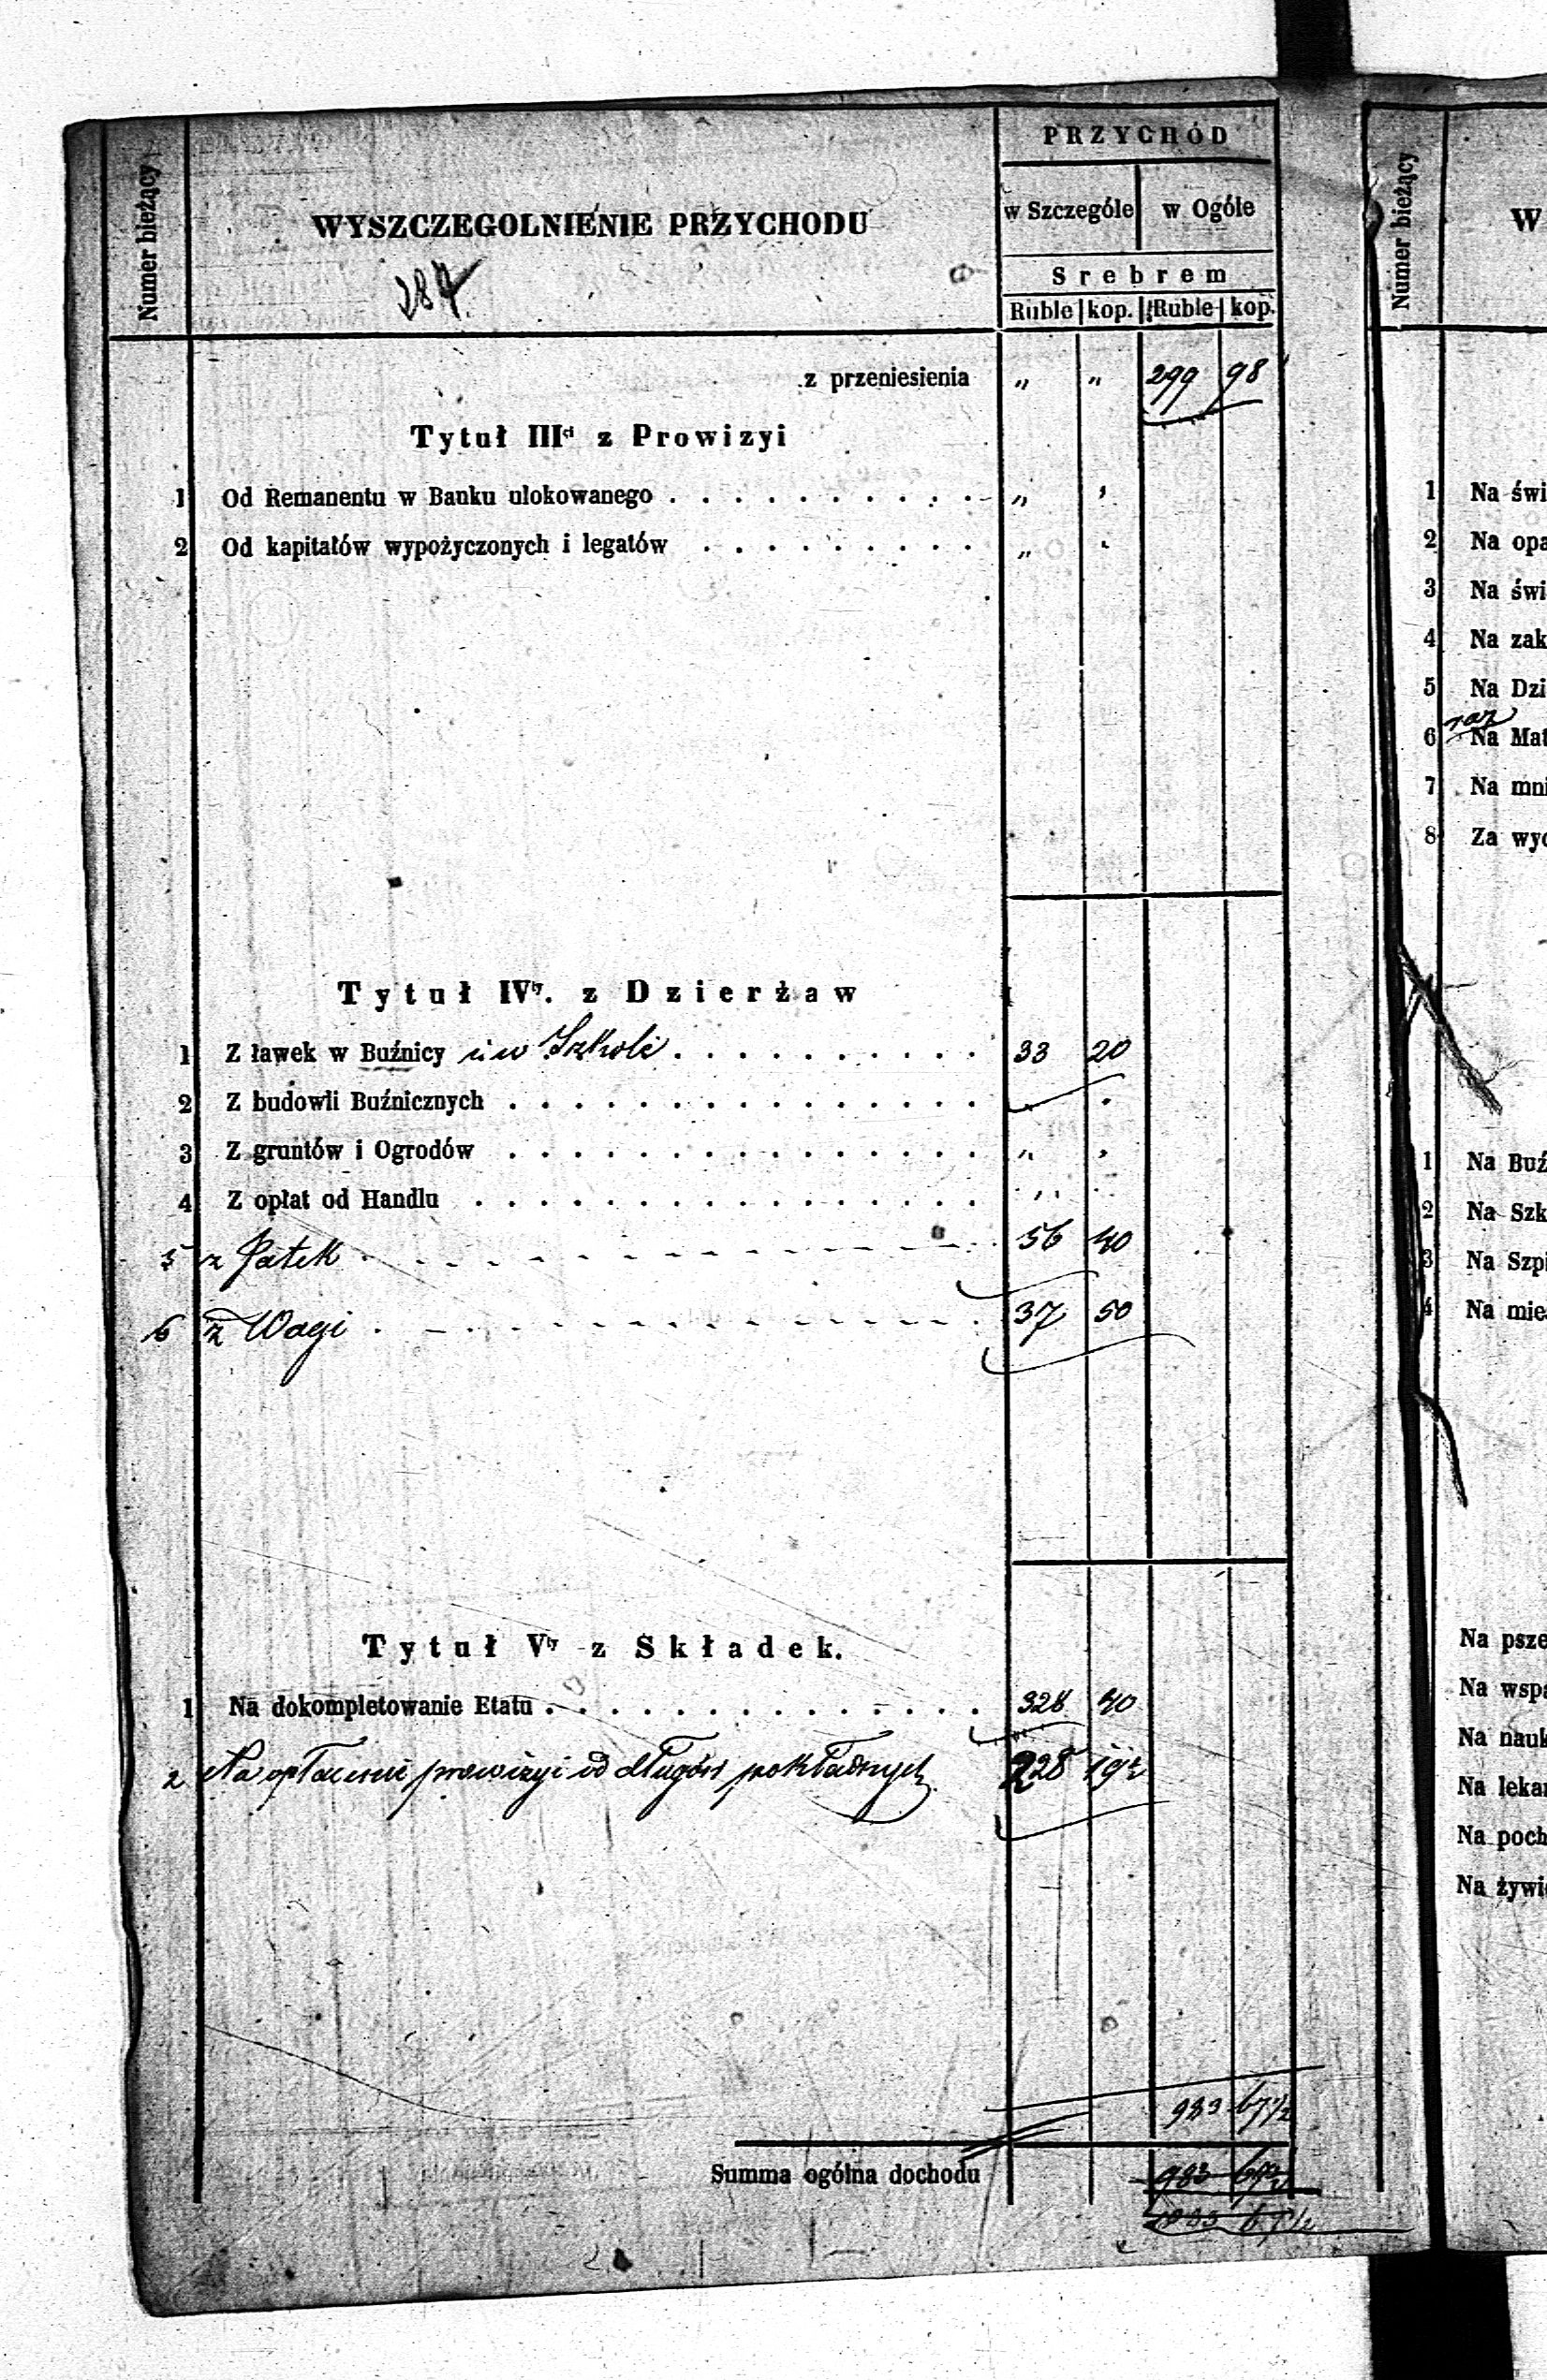 Numer bieżący
WYSZCZEGOLNIENIE PRZYCHODU
287
PRZYCHÓD
w Szczególe w Ogóle
Srebrem
Ruble kop. Ruble kop.
z przeniesienia " " 299 98
Tytuł IIIci z Prowizyi
1 Od Remanentu w Banku ulokowanego . . . . . . . . . . "
2 Od kapitałów wypożyczonych i legatów . . . . . . . . . "
Tytuł IVty. z Dzierżaw
1 Z ławek w Buźnicy i w Szkole . . . . . . . . . . 33 20
2 Z budowli Buźnicznych . . . . . . . . . . . . . . .
3 Z gruntów i Ogrodów . . . . . . . . . . . . . . . "
4 Z opłat od Handlu . . . . . . . . . . . . . . . . "
5 z Jatek 56 40
6 z Wagi 37 50
Tytuł Vty z Składek.
1 Na dokompletowanie Etatu . . . . . . . . . . . . . . 328 40
2 Na opłacenie prowizyi od długów pokładnych 228 19½
983 67½
Summa ogólna dochodu 983 67½
Numer bieżący
W
1 Na świ
2 Na opa
3 Na świ
4 Na zak
5 Na Dzi
raz
6 Na Mat
7 Na mni
8 Za wyc
1 Na Buź
2 Na Szk
3 Na Szpi
4 Na mie
Na psze
Na wspa
Na nauk
Na lekar
Na poch
Na żywi